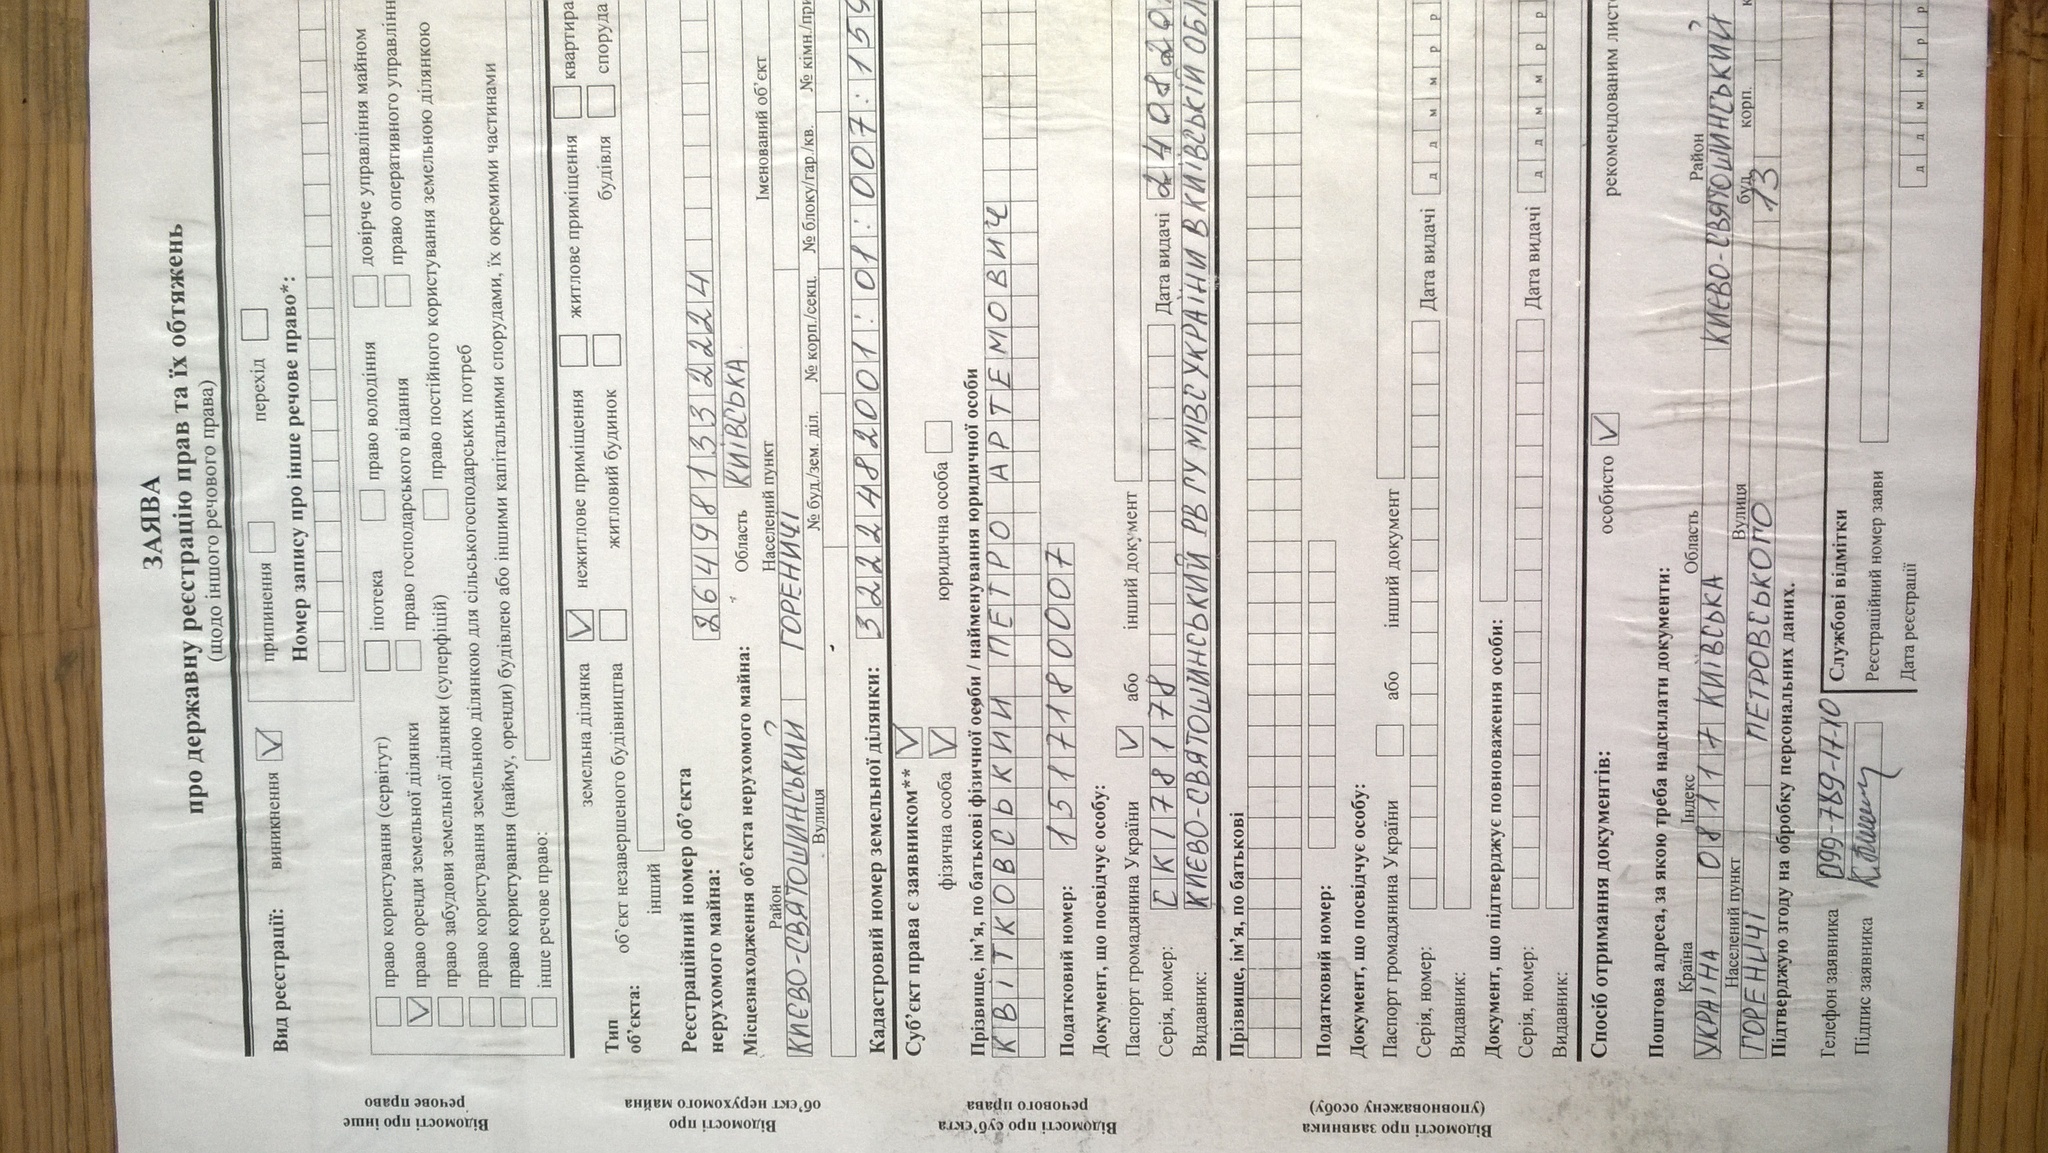 ЗАЯВА
про державну реєстрацію прав та їх обтяжень
(щодо іншого речового права)
Вид реєстрації: виникнення V припинення перехід
Номер запису про інше речове право*:
Відомості про інше речове право
право користування (сервітут) іпотека право володіння довірче управління майном
V право оренди земельної ділянки право господарського відання право оперативного управлінн
право забудови земельної ділянки (суперфіцій) право постійного користування земельною ділянкою
право користування земельною ділянкою для сільськогосподарських потреб
право користування (найму, оренди) будівлею або іншими капітальними спорудами, їх окремими частинами
інше речове право:
Відомості про об'єкт нерухомого майна
Тип об'єкта: земельна ділянка V нежитлове приміщення житлове приміщення квартира
об'єкт незавершеного будівництва житловий будинок будівля споруда
інший
Реєстраційний номер об'єкта нерухомого майна: 264981332224
Місцезнаходження об'єкта нерухомого майна: Область КИЇВСЬКА
Район Населений пункт Іменований об'єкт
КИЄВО-СВЯТОШИНСЬКИЙ ГОРЕНИЧІ
Вулиця № буд/зем. діл. № корп./секц. № блоку/гар./кв. № кімн./при
Кадастровий номер земельної ділянки: 3222482001:01:007:159
Відомості про суб'єкта речового права
Суб'єкт права є заявником** V
фізична особа V юридична особа
Прізвище, ім'я, по батькові фізичної особи / найменування юридичної особи
КВІТКОВСЬКИЙ ПЕТРО АРТЕМОВИЧ
Податковий номер: 1517180007
Документ, що посвідчує особу:
Паспорт громадянина України V або інший документ
Серія, номер: СК178178 Дата видачі 240820
Видавник: КИЄВО-СВЯТОШИНСЬКИЙ РВ ГУ МВС УКРАЇНИ В КИЇВСЬКІЙ ОБЛ
Відомості про заявника (уповноважену особу)
Прізвище, ім'я, по батькові
Податковий номер:
Документ, що посвідчує особу:
Паспорт громадянина України або інший документ
Серія, номер: Дата видачі д д м м р р
Видавник:
Документ, що підтверджує повноваження особи:
Серія, номер: Дата видачі д д м м р р
Видавник:
Спосіб отримання документів: особисто V рекомендованим листо
Поштова адреса, за якою треба надсилати документи:
Країна Індекс Область Район
УКРАЇНА 08117 КИЇВСЬКА КИЄВО-СВЯТОШИНСЬКИЙ
Населений пункт Вулиця буд. корп. к
ГОРЕНИЧІ ПЕТРОВСЬКОГО 13
Підтверджую згоду на обробку персональних даних.
Телефон заявника 099-789-17-10
Підпис заявника
Службові відмітки
Реєстраційний номер заяви
Дата реєстрації д д м м р р